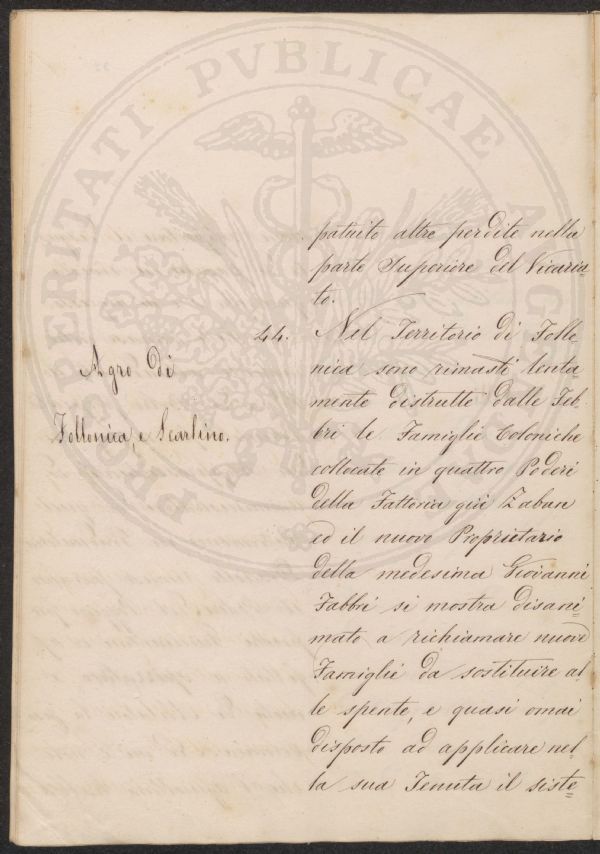 PROSPERITATI PVBLICAE AVGENDAE
patuito altre perdite nella
parte Superiore del Vicaria=
to.
44. Nel Territorio di Follo=
nica sono rimasti lenta
mente distrutte dalle Feb=
bri le Famiglie Coloniche
collocate in quattro Poderi
della Fattoria già Zaban
ed il nuovo Proprietario
della medesima Giovanni
Fabbri si mostra disani=
mato a richiamare nuove
Famiglie da sostituire al=
le spente, e quasi omai
disposto ad applicare nel=
la sua Tenuta il siste=
Agro di
Follonica, e Scarlino.